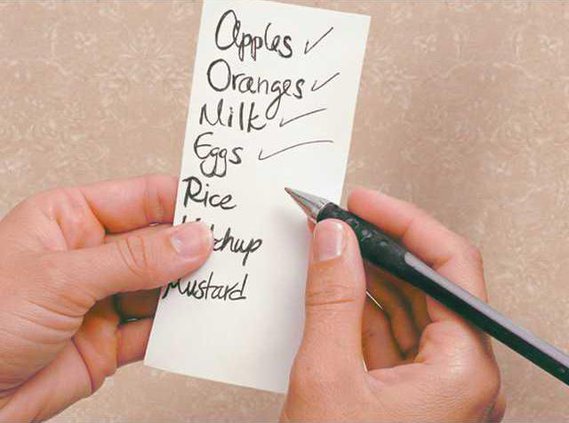 Apples ✓
Oranges ✓
Milk ✓
Eggs ✓
Rice
Ketchup
Mustard